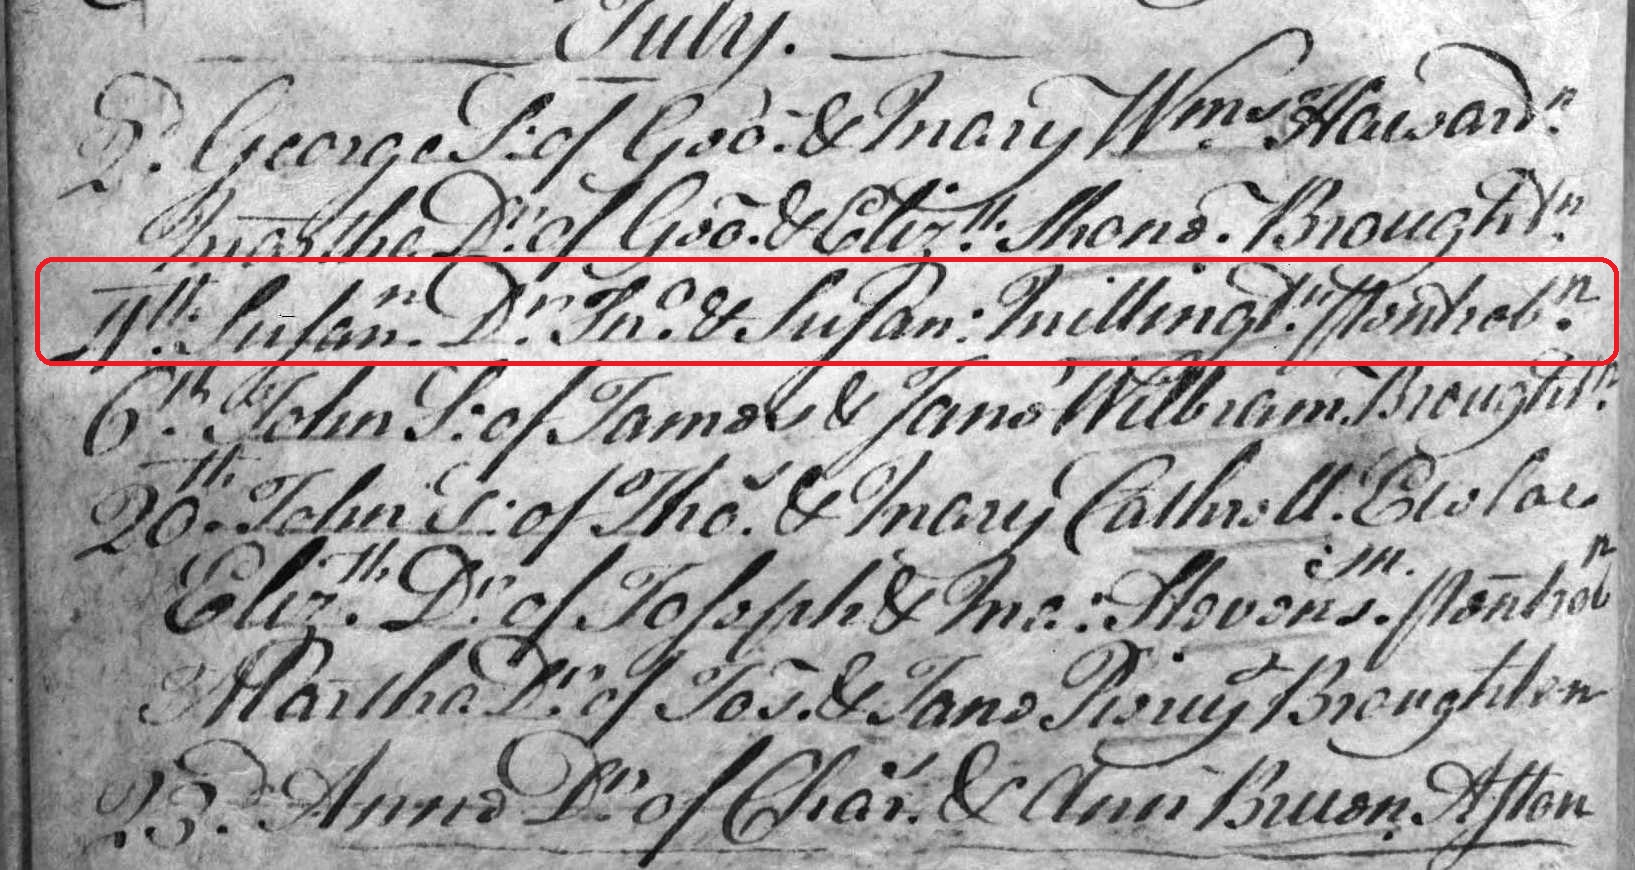 July.
2d. George S: of Geo: & Mary Wms Hawardn.
Martha Dr. of Geo. & Elizth: Shone. Broughtn.
4th. Susann. Dr. Jno. & Susan: Millingtn. Pentrobn.
6th. John S: of James & Jane Wilbram. Broughtn.
20th. John S: of Thos. & Mary Catherall. Ewloe
Elizth. Dr. of Joseph & Ma: Stevens. Pentrobn
Martha Dr. of Jos. & Jane Broughton
23d. Anne Dr. of Chas. & Ann Aston